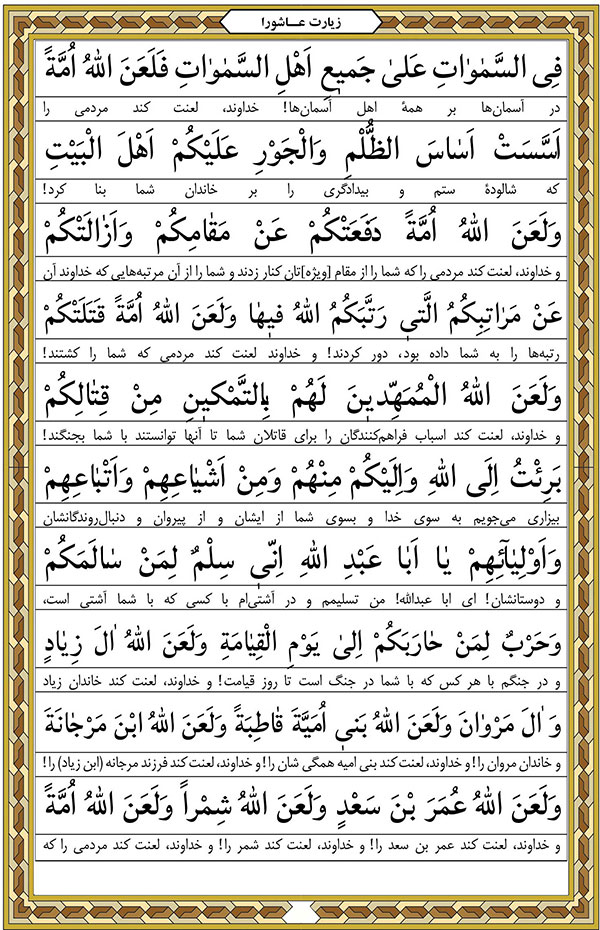 زیارت عـاشورا
فِی السَّمٰوٰاتِ عَلیٰ جَمیٖعِ اَهْلِ السَّمٰوٰاتِ فَلَعَنَ اللهُ اُمَّةً
در آسمان‌ها بر همهٔ اهل آسمان‌ها! خداوند، لعنت کند مردمی را
اَسَّسَتْ اَسٰاسَ الظُّلْمِ وَالْجَوْرِ عَلَیْکُمْ اَهْلَ الْبَیْتِ
که شالودهٔ ستم و بیدادگری را بر خاندان شما بنا کرد!
وَلَعَنَ اللهُ اُمَّةً دَفَعَتْکُمْ عَنْ مَقٰامِکُمْ وَاَزٰالَتْکُمْ
و خداوند، لعنت کند مردمی را که شما را از مقام [ویژه]تان کنار زدند و شما را از آن مرتبه‌هایی که خداوند آن
عَنْ مَرٰاتِبِکُمُ الَّتیٖ رَتَّبَکُمُ اللهُ فیٖهٰا وَلَعَنَ اللهُ اُمَّةً قَتَلَتْکُمْ
رتبه‌ها را به شما داده بود، دور کردند! و خداوند لعنت کند مردمی که شما را کشتند!
وَلَعَنَ اللهُ الْمُمَهِّدیٖنَ لَهُمْ بِالتَّمْکیٖنِ مِنْ قِتٰالِکُمْ
و خداوند، لعنت کند اسباب فراهم‌کنندگان را برای قاتلان شما تا آنها توانستند با شما بجنگند!
بَرِئْتُ اِلَی اللهِ وَاِلَیْکُمْ مِنْهُمْ وَمِنْ اَشْیٰاعِهِمْ وَاَتْبٰاعِهِمْ
بیزاری می‌جویم به سوی خدا و بسوی شما از ایشان و از پیروان و دنبال‌روندگانشان
وَاَوْلِیٰآئِهِمْ یٰا اَبٰا عَبْدِ اللهِ اِنّیٖ سِلْمٌ لِمَنْ سٰالَمَکُمْ
و دوستانشان! ای ابا عبدالله! من تسلیمم و در آشتی‌ام با کسی که با شما آشتی است،
وَحَرْبٌ لِمَنْ حٰارَبَکُمْ اِلیٰ یَوْمِ الْقِیٰامَةِ وَلَعَنَ اللهُ اٰلَ زِیٰادٍ
و در جنگم با هر کس که با شما در جنگ است تا روز قیامت! و خداوند، لعنت کند خاندان زیاد
وَ اٰلَ مَرْوٰانَ وَلَعَنَ اللهُ بَنیٖ اُمَیَّةَ قٰاطِبَةً وَلَعَنَ اللهُ ابْنَ مَرْجٰانَةَ
و خاندان مروان را! و خداوند، لعنت کند بنی امیه همگی شان را! و خداوند، لعنت کند فرزند مرجانه (ابن زیاد) را!
وَلَعَنَ اللهُ عُمَرَ بْنَ سَعْدٍ وَلَعَنَ اللهُ شِمْراً وَلَعَنَ اللهُ اُمَّةً
و خداوند، لعنت کند عمر بن سعد را! و خداوند، لعنت کند شمر را! و خداوند، لعنت کند مردمی را که